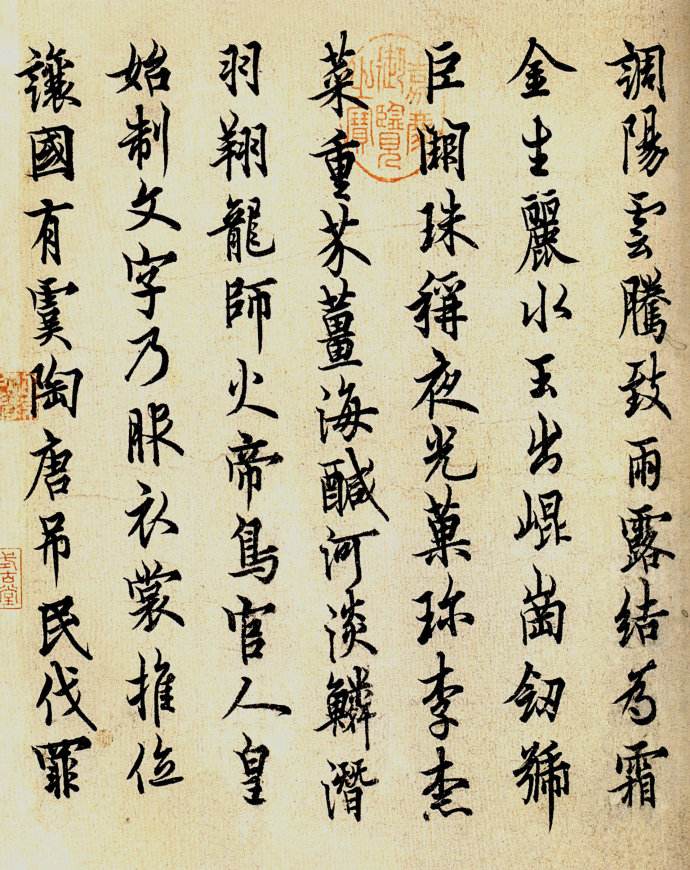 調陽雲騰致雨露結為霜
金生麗水玉出崐崗劒號
巨闕珠稱夜光菓珎李柰
菜重芥薑海醎河淡鱗潛
羽翔龍師火帝鳥官人皇
始制文字乃服衣裳推位
讓國有虞陶唐吊民伐罪
嘉慶御覽之寶
式古堂